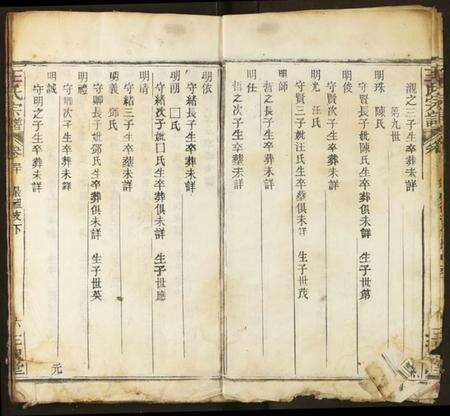 濺之三子生卒葬未詳
第九世
明珠 陳氏
守賢長子妣陳氏生卒葬俱未詳 生子世第
明俊
守賢次子生卒葬未詳
明光 汪氏
守賢三子妣汪氏生卒葬俱未詳 生子世茂
明師
哲之長子生卒葬未詳
明任
哲之次子生卒葬未詳
明依
守緒長子生卒葬未詳
明丽 囗氏
守緒次子妣囗氏生卒葬俱未詳 生子世應
明清
守緒三子生卒葬未詳
明義 鄧氏
守卿長子妣鄧氏生卒葬俱未詳 生子世英
明禮
守卿次子生卒葬未詳
明誠
守明之子生卒葬未詳
元
王氏宗譜